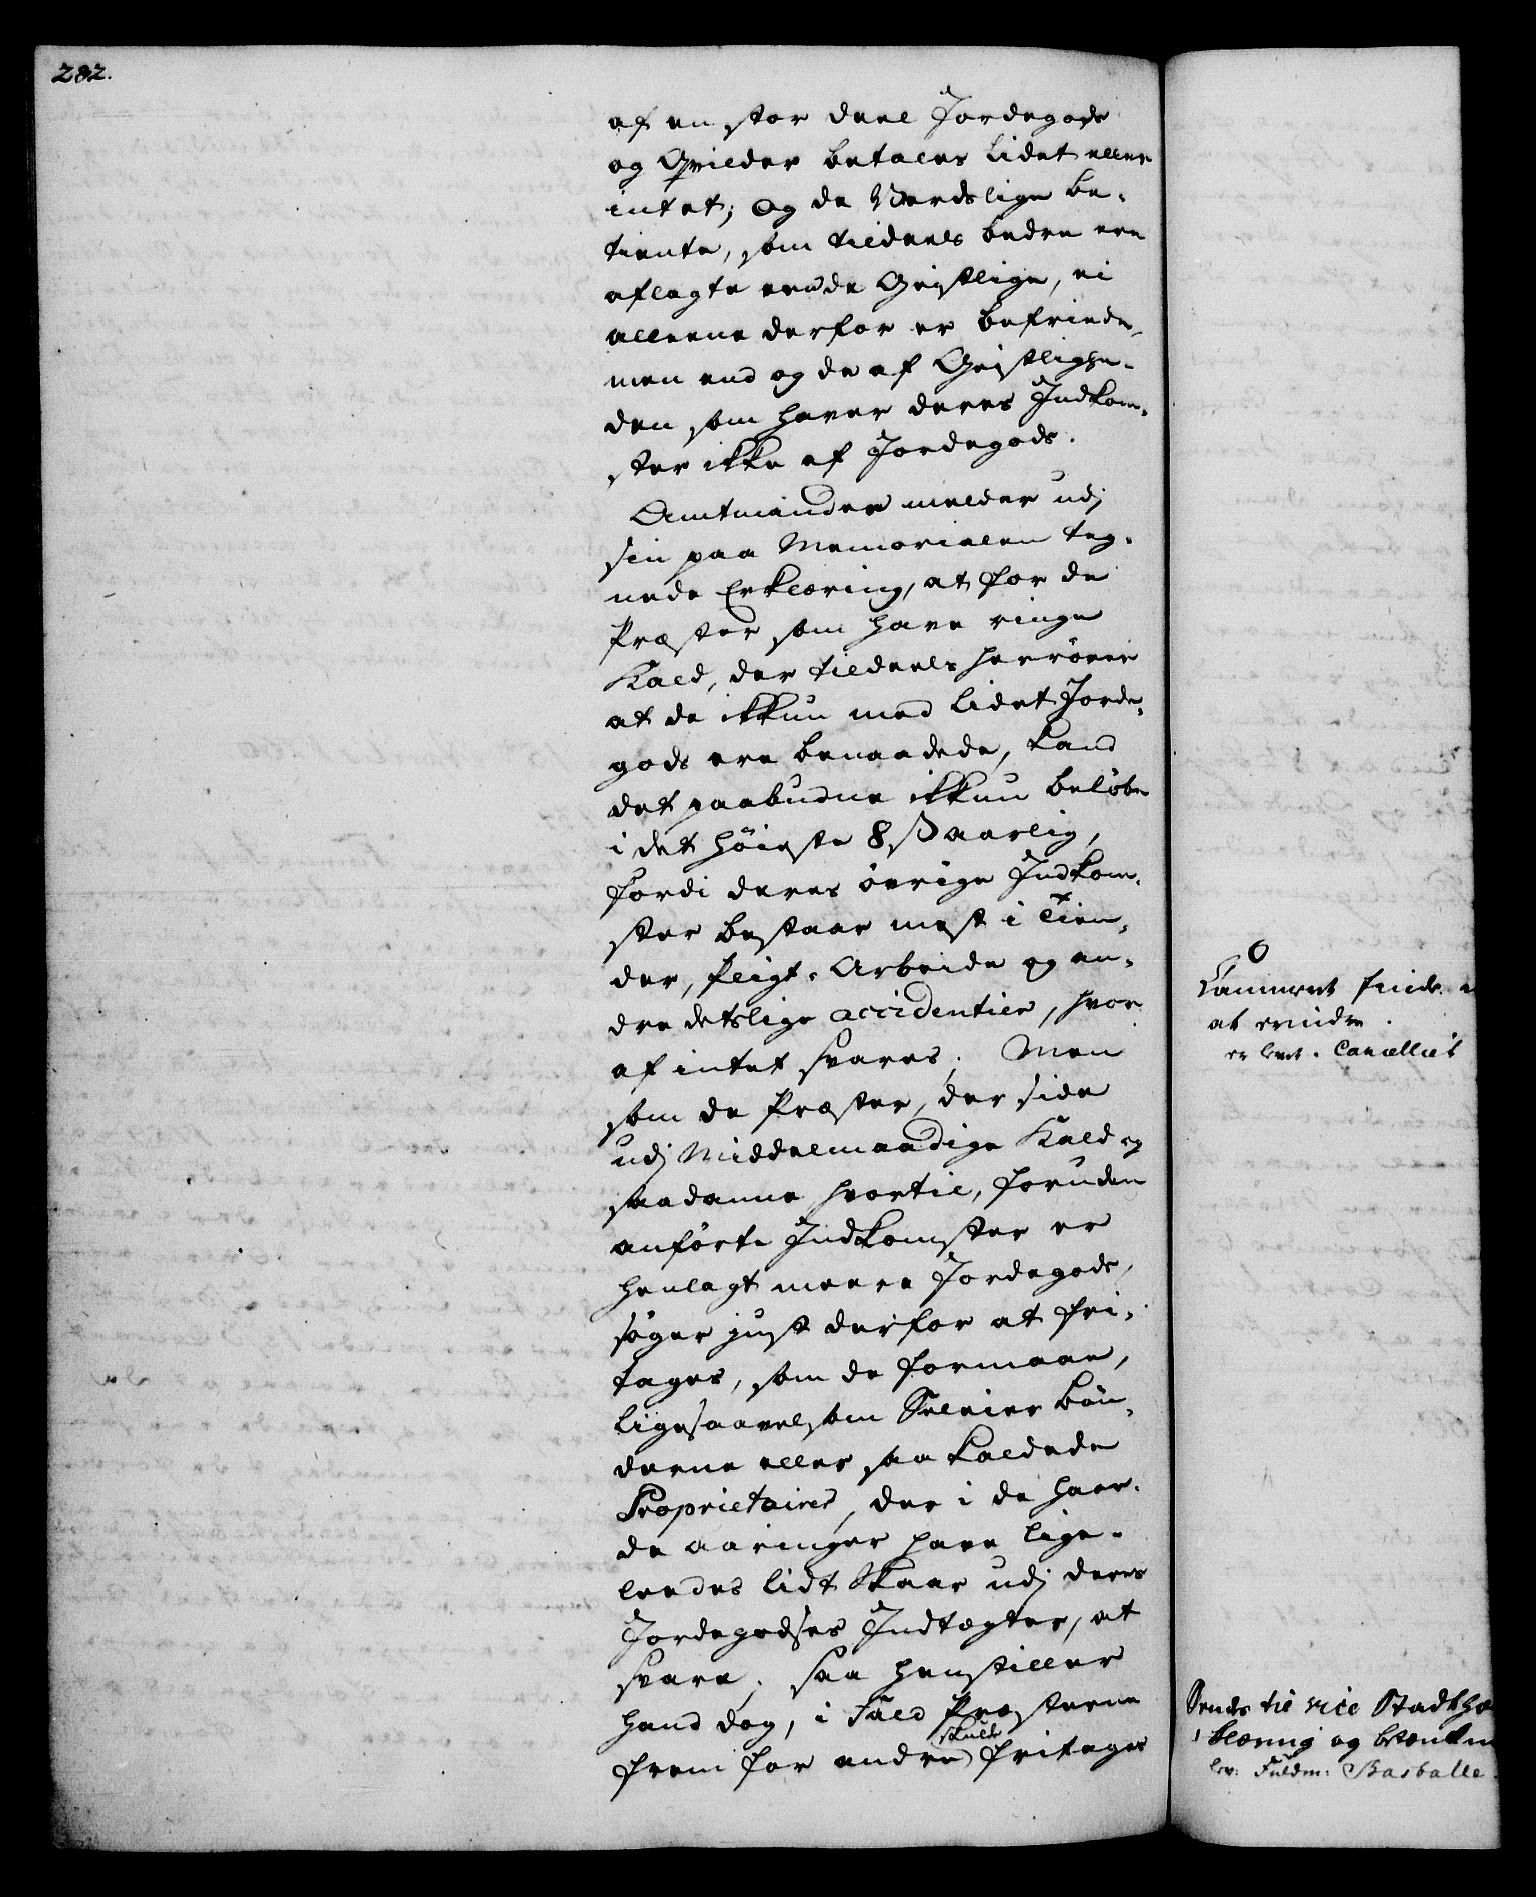 282.
af en stor deel Jordegods
og Qvilder betales lidet eller
intet; og de Verdslige be-
tiente, som tildeels bedre ere
aflagte end de Geistlige, ei
alleene derfor er befriede,
men end og de af Geistlighe-
den som haver deres Indkom-
ster ikke af Jordegods.
Amtmanden melder udj
sin paa Memorialen teg-
nede Erklæring, at for de
Præster som have ringe
Kald, der tildeels herrører
at de ikkun med lidet Jorde-
gods ere benaadede, kand
det paabudne ikkun beløbe
i det høieste 8 ß aarlig,
fordi deres øvrige Indkom-
ster bestaar mest i Tien-
der, Pligt-Arbeide og an-
dre detslige accidentier, hvor
af intet svares; Men
som de Præster, der side
udj Middelmaadige Kald og
saadanne hvortil, foruden
anførte Indkomster er
henlagt meere Jordegods,
søger just derfor at fri-
tages, som de formaae,
ligesaavel som Selveier bøn-
derne eller saa kaldede
Proprietairer, der i de haar-
de aaringer have lige-
leedes lidt Skaar udj deres
Jordegodses Indtægter, at
svare; saa henstiller
hand dog, i Fald Præsterne
skulde
frem for andre fritages
Cammeret finder
at erindre.
er levt. Cancelliet
Sendes til vice Stadth
klæring og betænkn
lev: Fuldm: Basballe.